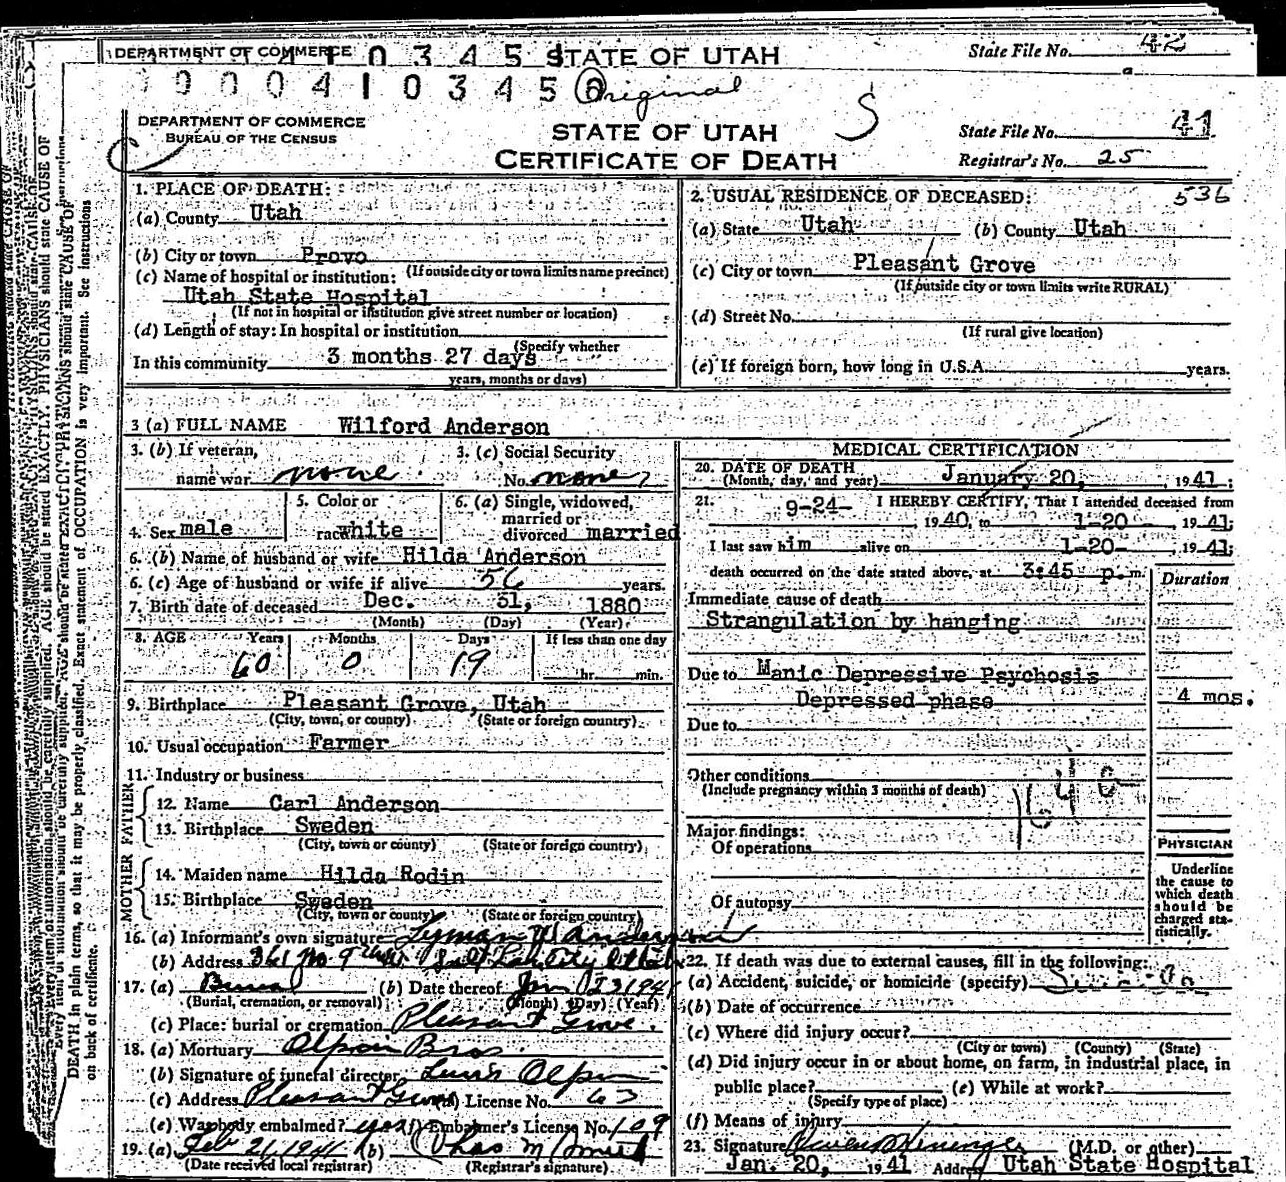 DEPARTMENT OF COMMERCE STATE OF UTAH State File No. 42
0 0 0 4 1 0 3 4 5 6 Original
DEPARTMENT OF COMMERCE
BUREAU OF THE CENSUS
STATE OF UTAH
CERTIFICATE OF DEATH
State File No. 41
Registrar's No. 25
536
1. PLACE OF DEATH:
(a) County Utah
(b) City or town Provo
(If outside city or town limits name precinct)
(c) Name of hospital or institution:
Utah State Hospital
(If not in hospital or institution give street number or location)
(d) Length of stay: In hospital or institution
(Specify whether
In this community 3 months 27 days
years, months or days)
2. USUAL RESIDENCE OF DECEASED:
(a) State Utah (b) County Utah
(c) City or town Pleasant Grove
(If outside city or town limits write RURAL)
(d) Street No.
(If rural give location)
(e) If foreign born, how long in U.S.A. years.
3 (a) FULL NAME Wilford Anderson
3. (b) If veteran,
name war none
3. (c) Social Security
No. none
4. Sex male
5. Color or
race white
6. (a) Single, widowed,
married or
divorced married
6. (b) Name of husband or wife Hilda Anderson
6. (c) Age of husband or wife if alive 56 years.
7. Birth date of deceased Dec. 31, 1880
(Month) (Day) (Year)
8. AGE Years Months Days If less than one day
60 0 19 hr. min.
9. Birthplace Pleasant Grove, Utah
(City, town, or county) (State or foreign country)
10. Usual occupation Farmer
11. Industry or business
FATHER
12. Name Carl Anderson
13. Birthplace Sweden
(City, town or county) (State or foreign country)
MOTHER
14. Maiden name Hilda Rodin
15. Birthplace Sweden
(City, town or county) (State or foreign country)
16. (a) Informant's own signature Lyman W Anderson
(b) Address 361 No 9th Salt Lake City Utah
17. (a) Burial (b) Date thereof Jan 23 1941
(Burial, cremation, or removal) (Month) (Day) (Year)
(c) Place: burial or cremation Pleasant Grove.
18. (a) Mortuary Olpin Bros.
(b) Signature of funeral director Olpin
(c) Address Pleasant Grove (d) License No. 67
(e) Was body embalmed? yes (f) Embalmer's License No. 109
19. (a) Feb 21, 1941 (b) Chas M Smith
(Date received local registrar) (Registrar's signature)
MEDICAL CERTIFICATION
20. DATE OF DEATH
(Month, day, and year) January 20, 1941.
21. I HEREBY CERTIFY, That I attended deceased from
9-24- 1940, to 1-20-, 1941;
I last saw him alive on 1-20-, 1941;
death occurred on the date stated above, at 3:45 p. m.
Duration
Immediate cause of death
Strangulation by hanging
Due to Manic Depressive Psychosis
Depressed phase 4 mos.
Due to
Other conditions
(Include pregnancy within 3 months of death)
164 0
Major findings:
Of operations
Of autopsy
PHYSICIAN
Underline
the cause to
which death
should be
charged sta-
tistically.
22. If death was due to external causes, fill in the following:
(a) Accident, suicide, or homicide (specify)
(b) Date of occurrence
(c) Where did injury occur?
(City or town) (County) (State)
(d) Did injury occur in or about home, on farm, in industrial place, in
public place? (e) While at work?
(Specify type of place)
(f) Means of injury
23. Signature (M.D. or other)
Jan. 20, 1941 Address Utah State Hospital
DEATH in plain terms, so that it may be properly classified. Exact statement of OCCUPATION is very important. See instructions
on back of certificate.